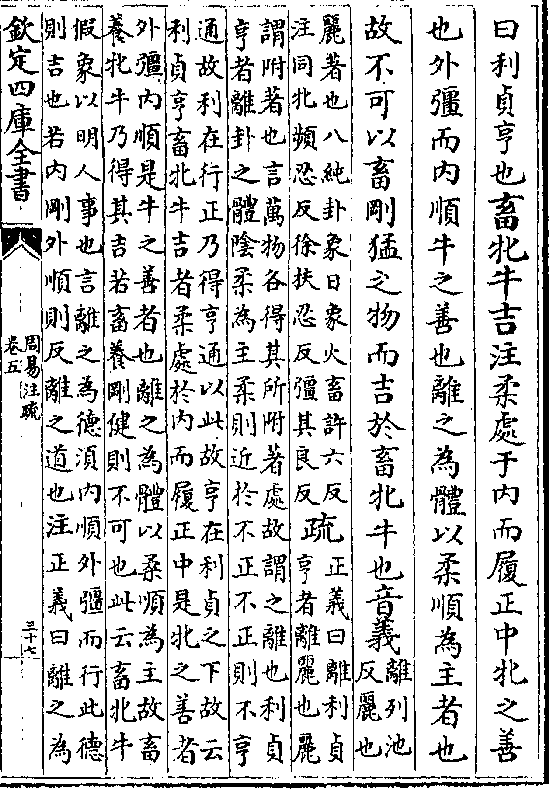 曰利貞亨也畜牝牛吉注柔處于内而履正中牝之善
也外彊而内順牛之善也離之為體以柔順為主者也
故不可以畜剛猛之物而吉於畜牝牛也音義離列池反麗也
麗著也八純卦象日象火畜許六反
注同牝頻忍反徐扶忍反彊其良反
疏
正義曰離利貞
亨者離麗也麗
謂附著也言萬物各得其所附著處故謂之離也利貞
亨者離卦之體陰柔為主柔則近於不正不正則不亨
通故利在行正乃得亨通以此故亨在利貞之下故云
利貞亨畜牝牛吉者柔處於内而履正中是牝之善者
外彊内順是牛之善者也離之為體以柔順為主故畜
養牝牛乃得其吉若畜養剛健則不可也此云畜牝牛
假象以明人事也言離之為德須内順外彊而行此德
則吉也若内剛外順則反離之道也注正義曰離之為
欽定四庫全書
周易注疏
卷五
三十七